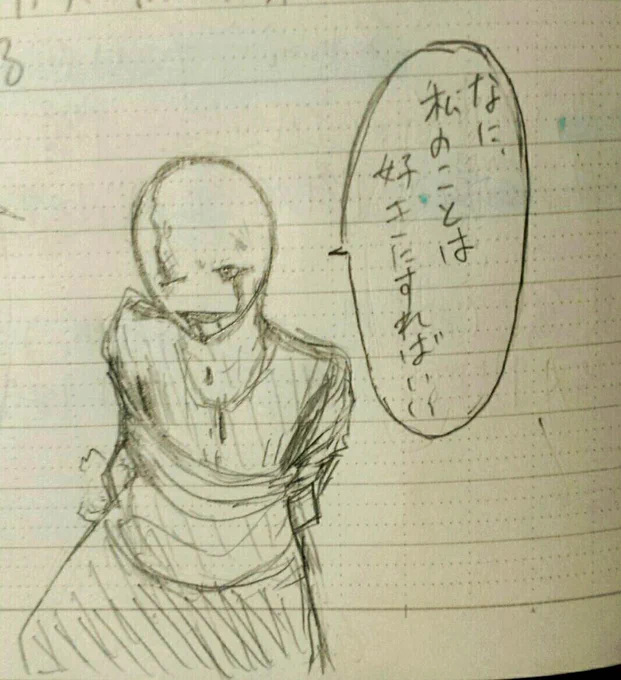 なに、
私のことは
好キにすればいい
る